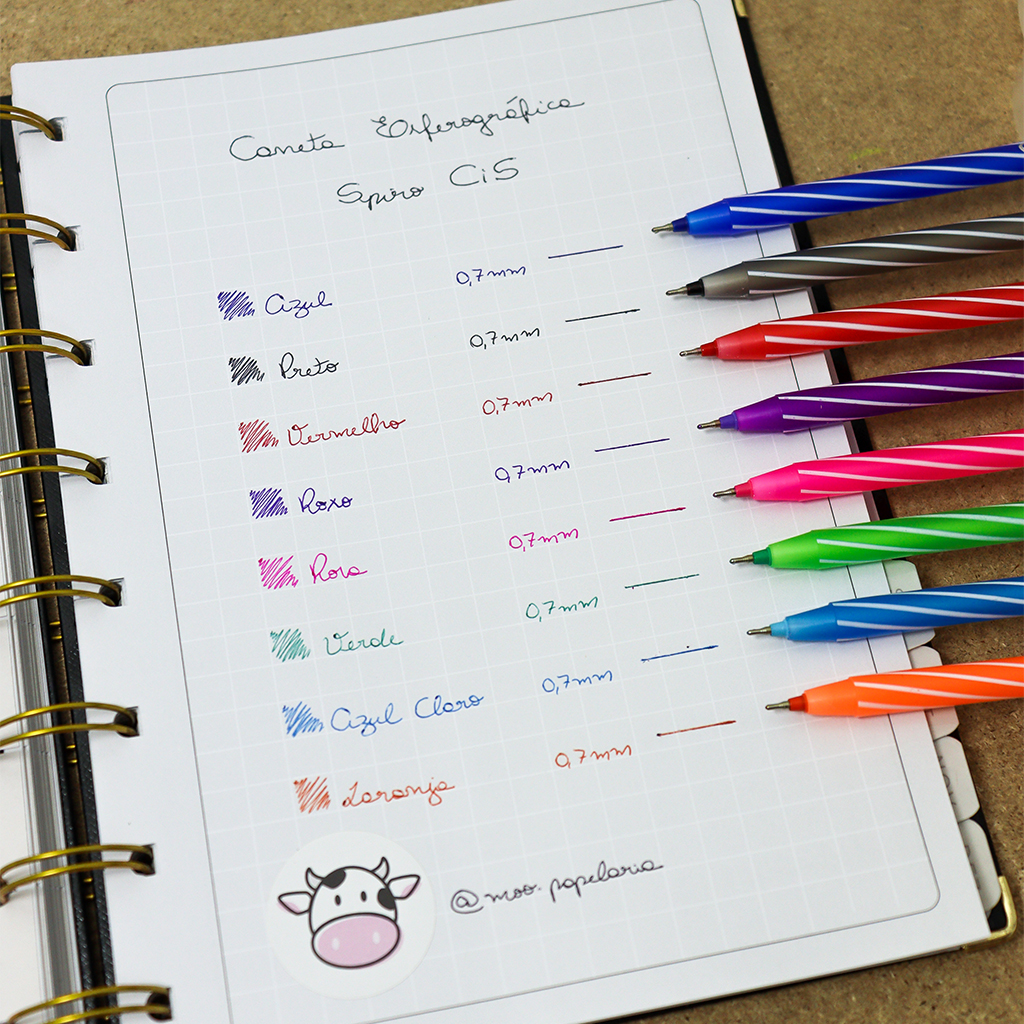 Caneta Esferográfica
Spiro CiS
Azul 0,7mm
Preto 0,7mm
Vermelho 0,7mm
Roxo 0,7mm
Rosa 0,7mm
Verde 0,7mm
Azul Claro 0,7mm
Laranja 0,7mm
@moo.papelaria